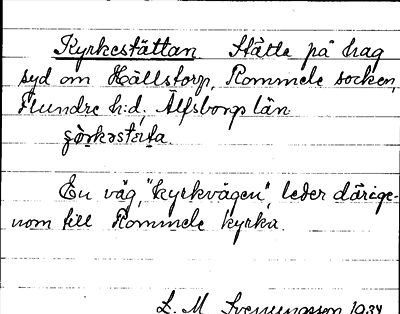 Kyrkestättan. Stätta på hag
syd om Hällstorp, Rommele socken,
Flundre h:d, Älfsborgs län.
En väg, "kyrkvägen", leder därige-
nom till Rommele kyrka.
L. M. Svenungsson 1934